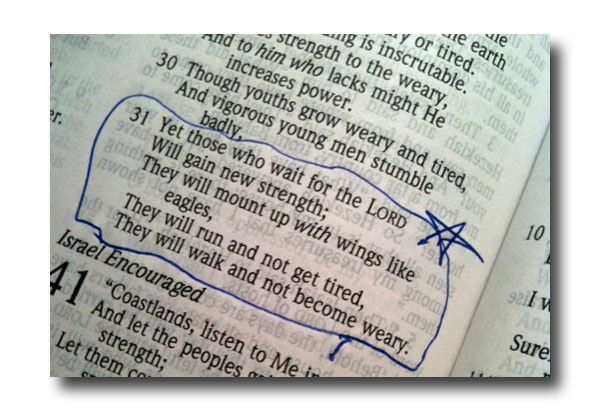 the earth
ing is inscrutable.
s strength to the weary,
And to him who lacks might He
increases power.
30 Though youths grow weary and tired,
And vigorous young men stumble
badly,
31 Yet those who wait for the LORD
Will gain new strength;
They will mount up with wings like
eagles,
They will run and not get tired,
They will walk and not become weary.
Israel Encouraged
41 "Coastlands, listen to Me in
And let the peoples
strength;
Let them
10
I w
Sure
And